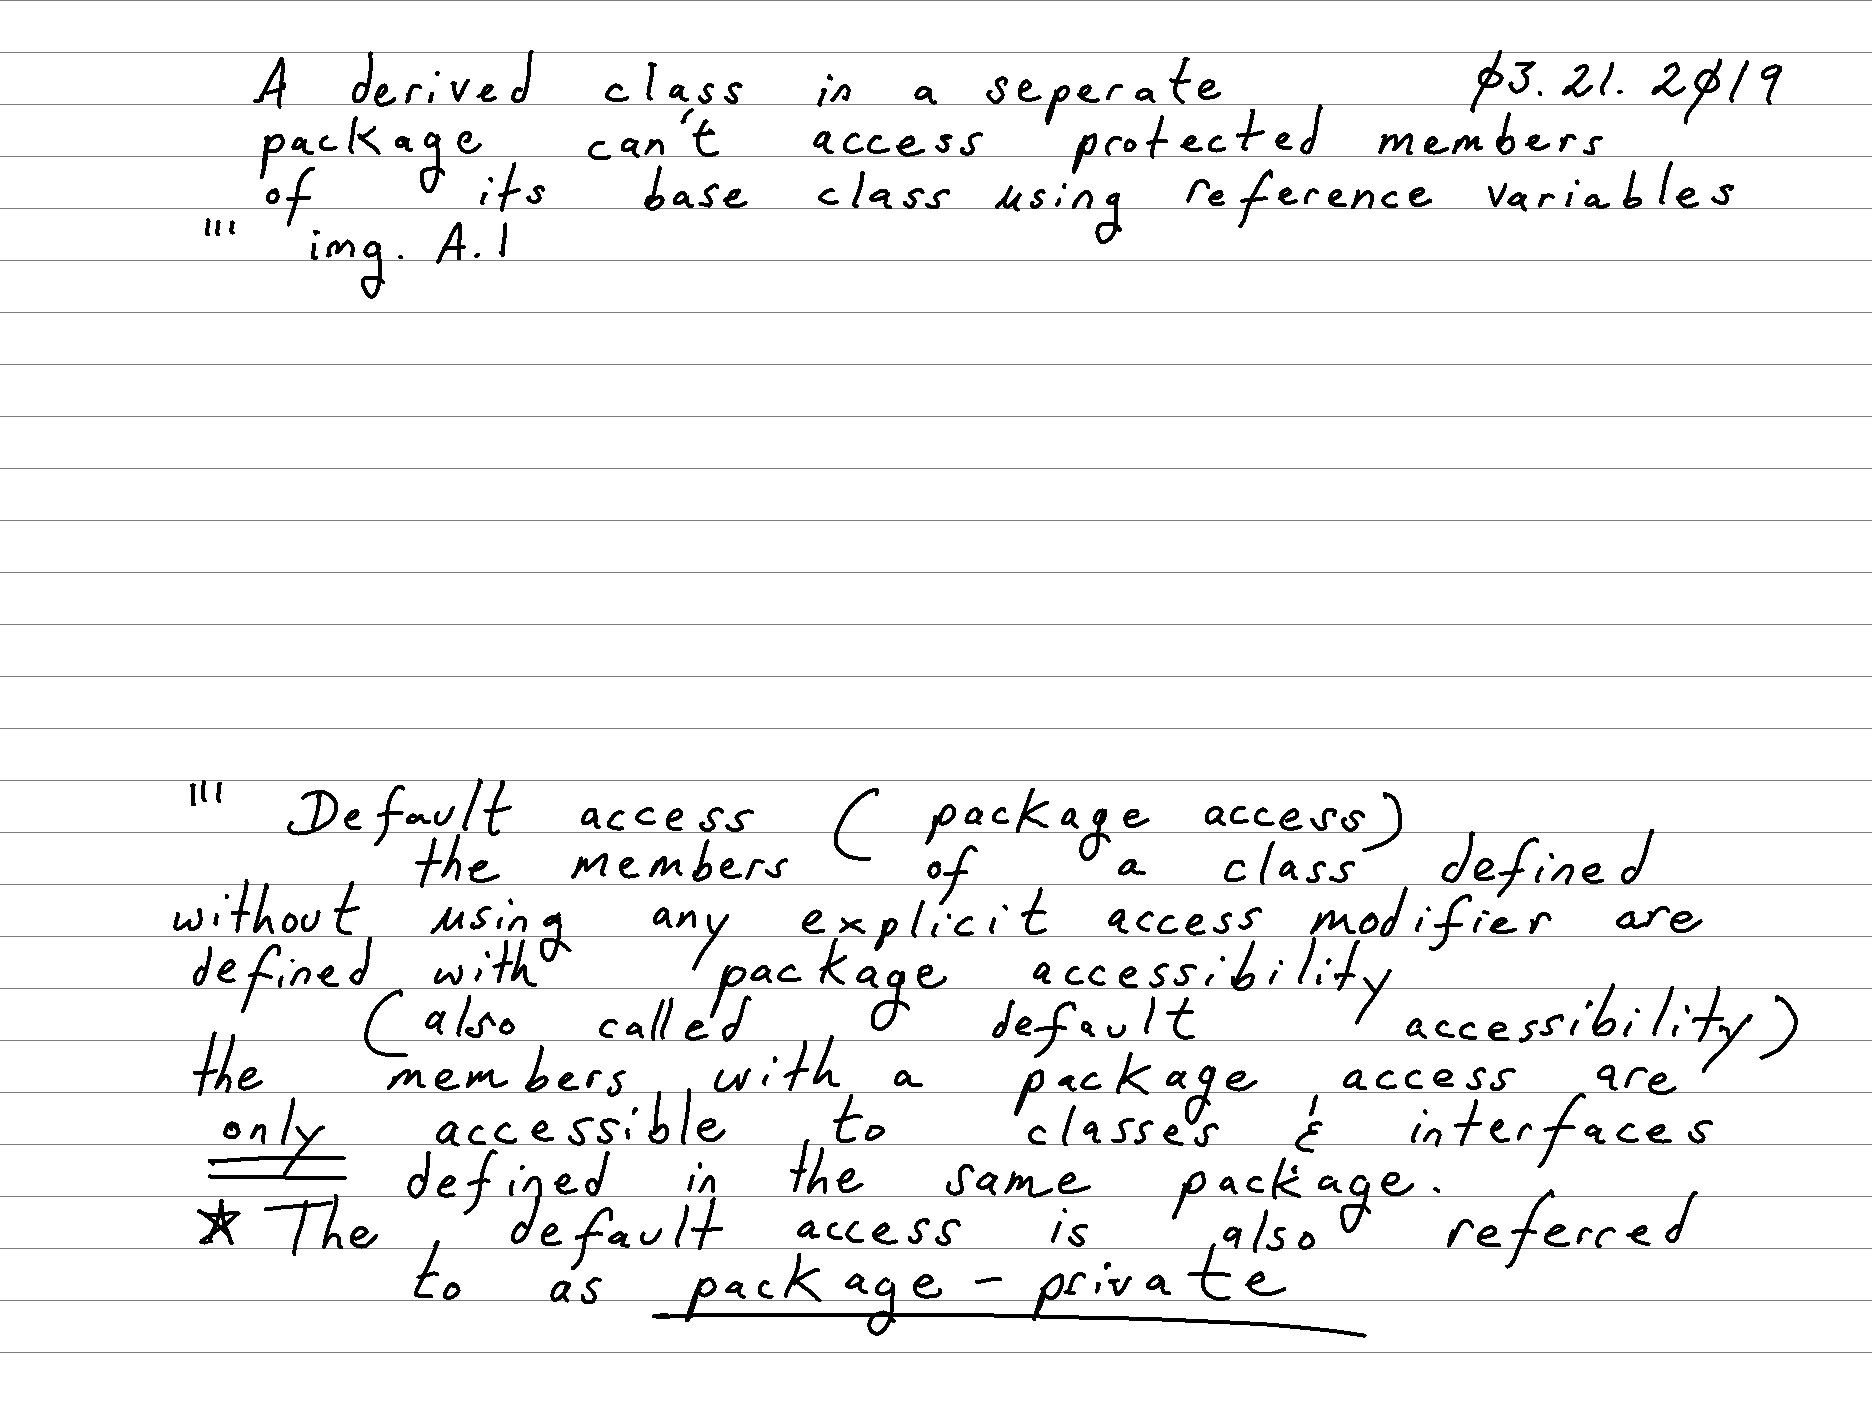 A derived class in a seperate 03.21.2019
package can't access protected members
of its base class using reference variables
''' img. A.1
''' Default access (package access)
the members of a class defined
without using any explicit access modifier are
defined with package accessibility
(also called default accessibility)
the members with a package access are
only accessible to classes & interfaces
defined in the same package.
* The default access is also referred
to as package-private